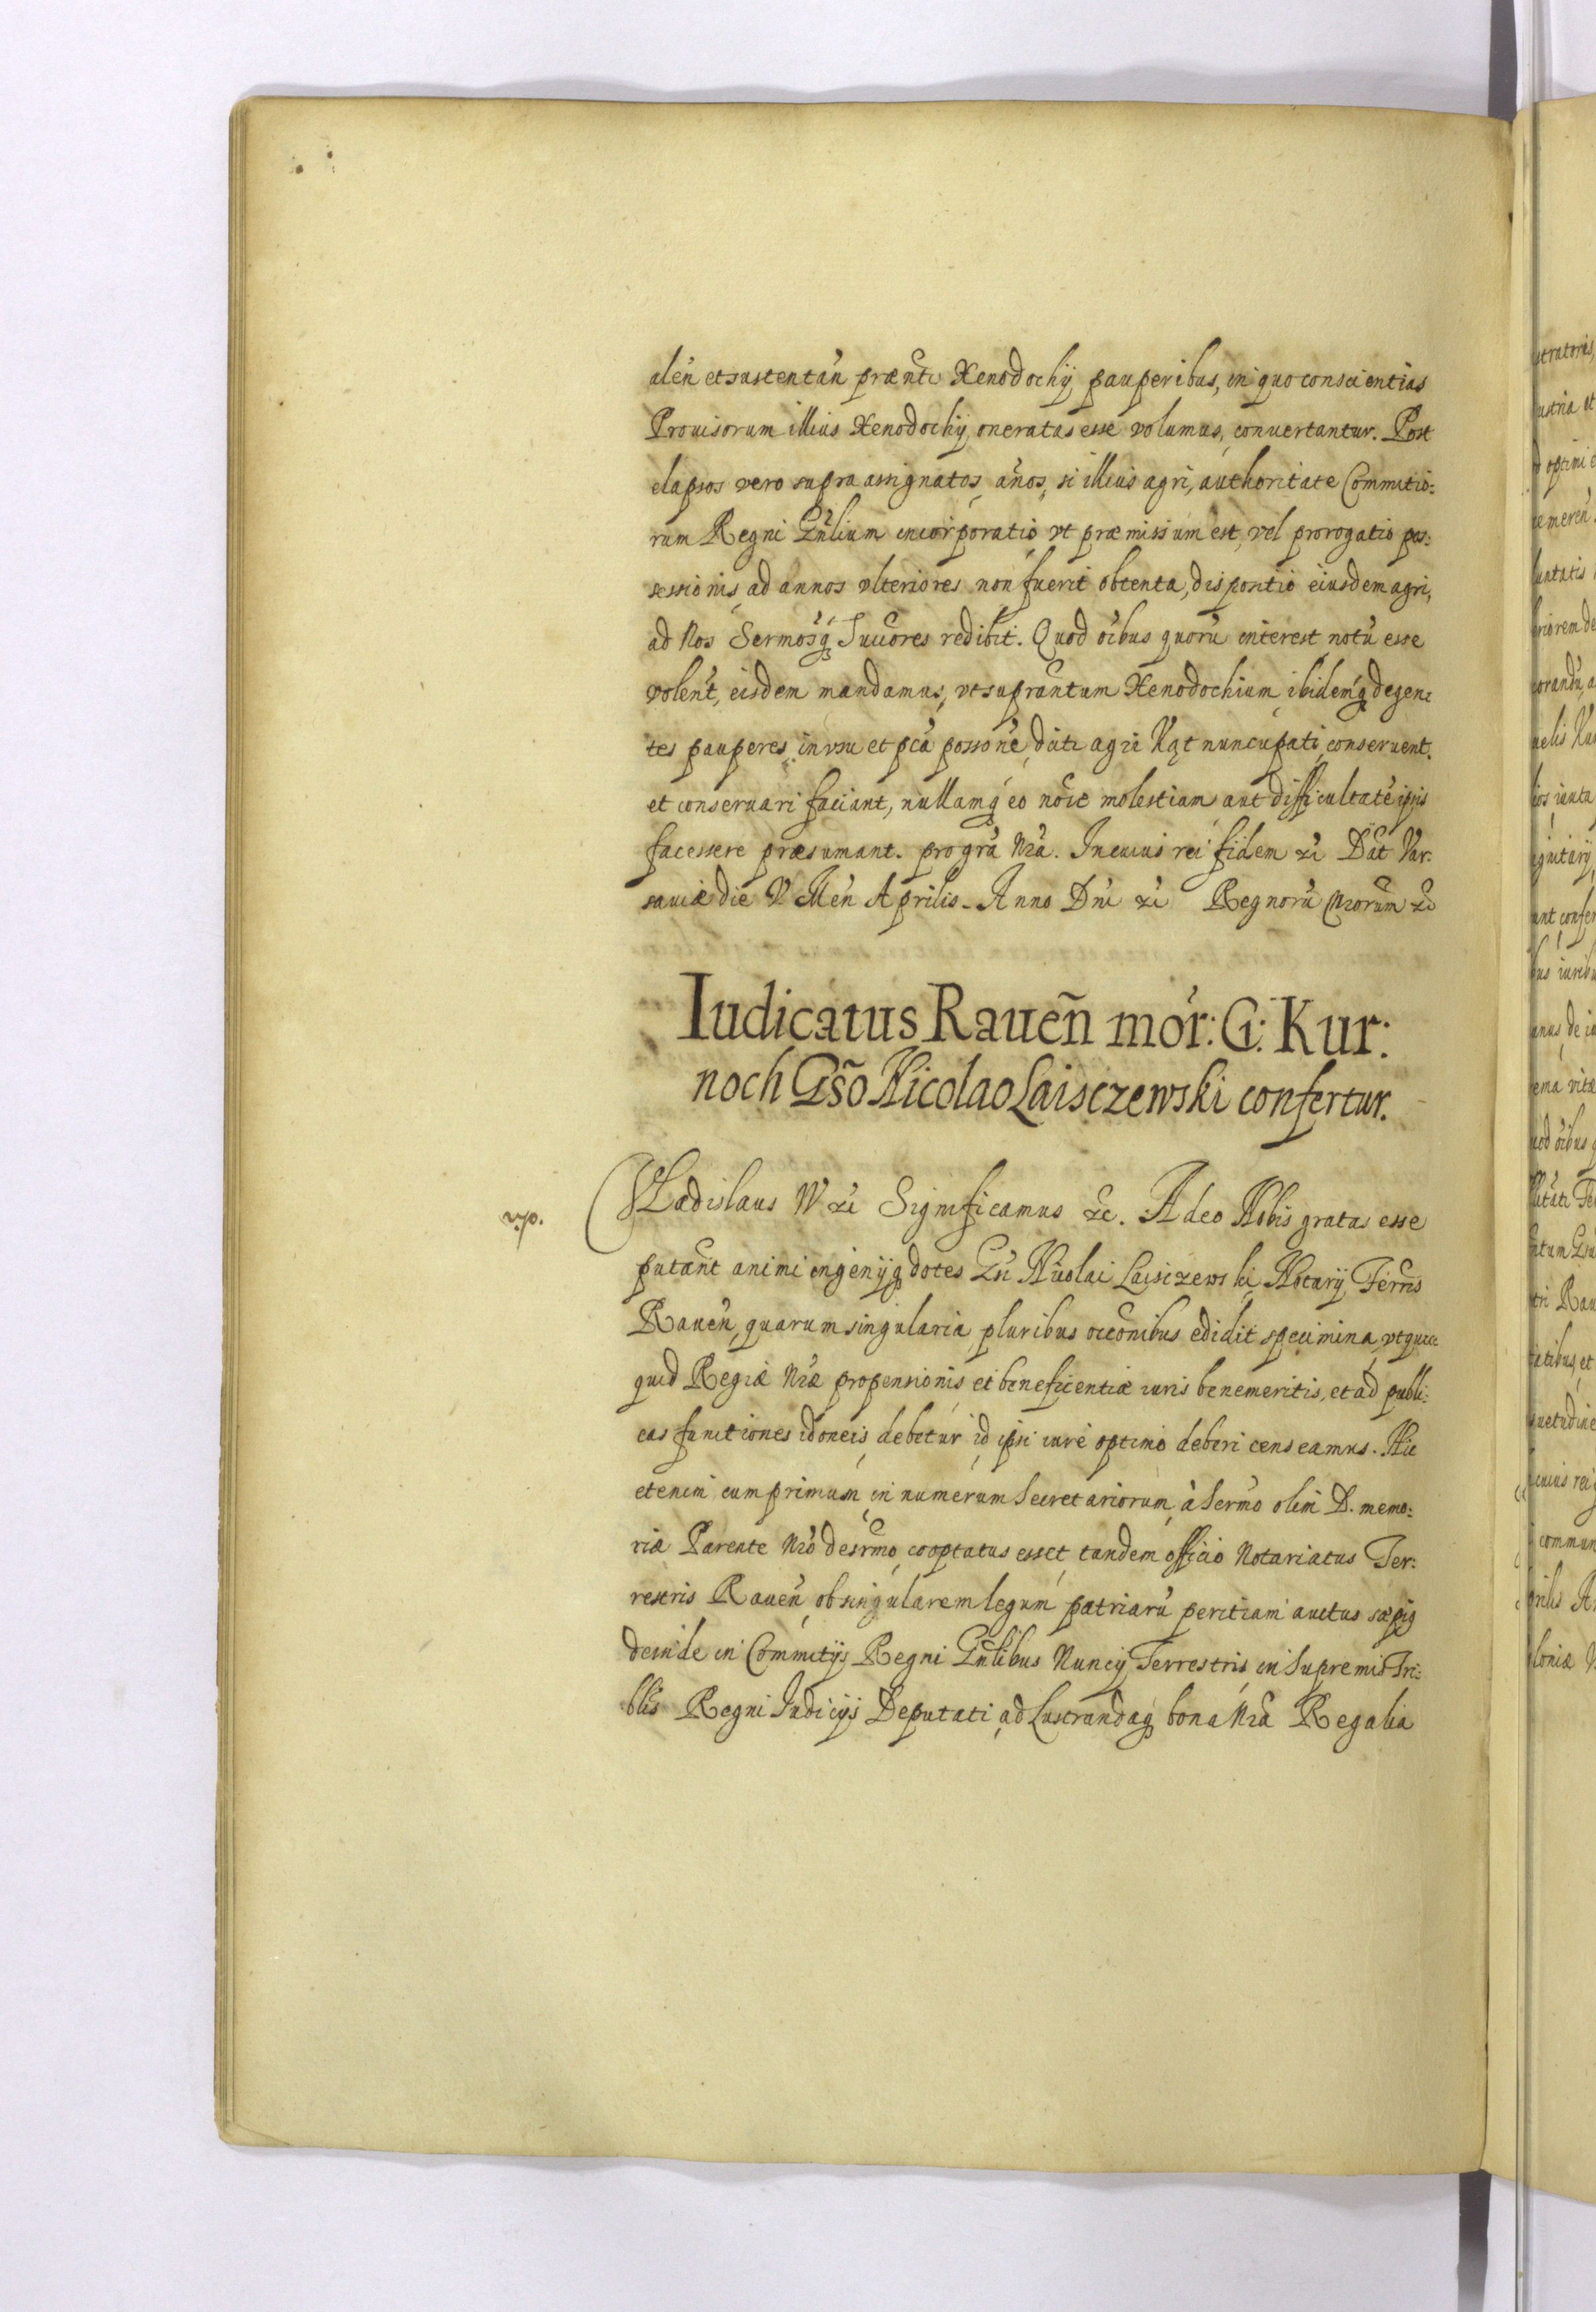 alen̄ et sustentan̄ præntı Xenodochij pauperibus, in quo conscientias
Prouisorum illius Xenodochij oneratas esse volumus, conuertantur. Post
elapsos vero supra assignatos, an̄os, si illius agri, authoritate Commitio:
rum Regni Gn̄lium incorporatio vt præmissum est, vel prorogatio pos:
sessionis, ad annos vlteriores non fuerit obtenta, dispositio eiusdem agri,
ad Nos Sermosq́ Succores redibit. Quod oībus quorū interest notū esse
volen̄t, eisdem mandamus, vt supran̄tum Xenodochium ibidemq́ degen:
tes pauperes, in vsu et pcā posso͞ne, dicti agri Kąt nuncupati, conseruent.
et conseruari faciant, nullamq́ eo no͞ie molestiam aut difficultatē ipsis
facessere præsumant. pro gr̄a Nr̄a. In cuius rei fidem &c̄ Dat Var:
sauiæ die V Men̄ Aprilis. Anno Dn̄i &c̄ Regnorū Nr̄orum &c̄
Iudicatus Raueñ mór: G: Kur:
noch Gs̃o Nicolao Laisczewski confertur.
270. Vladislaus IV &c̄ Significamus &c. Adeo Nobis gratas esse
putan̄t animi ingenijq́ dotes Gs̄i Nicolai Laisczewski, Notarij Terr̄is
Rauen̄, quarum singularia, pluribus occo͞nibus edidit specimina, vt quic:
quid Regiæ Nr̄æ propensionis et beneficentiæ iuris benemeritis, et ad publi:
cas functiones idoneis, debetur id ipsi iure optimo deberi censeamus. Hic
etenim cum primum, in numerum Secretariorum à Serm̄o olim D. memo:
riæ Parente Nr̄o desr̄mo, cooptatus esset tandem officio Notariatus Ter:
restris Rauen̄, ob singularem legum patriarū peritiam auctus sæpiq́
deinde in Commitijs Regni Gn̄libus Nuncij Terrestris, in Supremis Tri:
bl̄is Regni Iudicijs Deputati, ad Lustrandaq́ bona Nr̄a Regalia